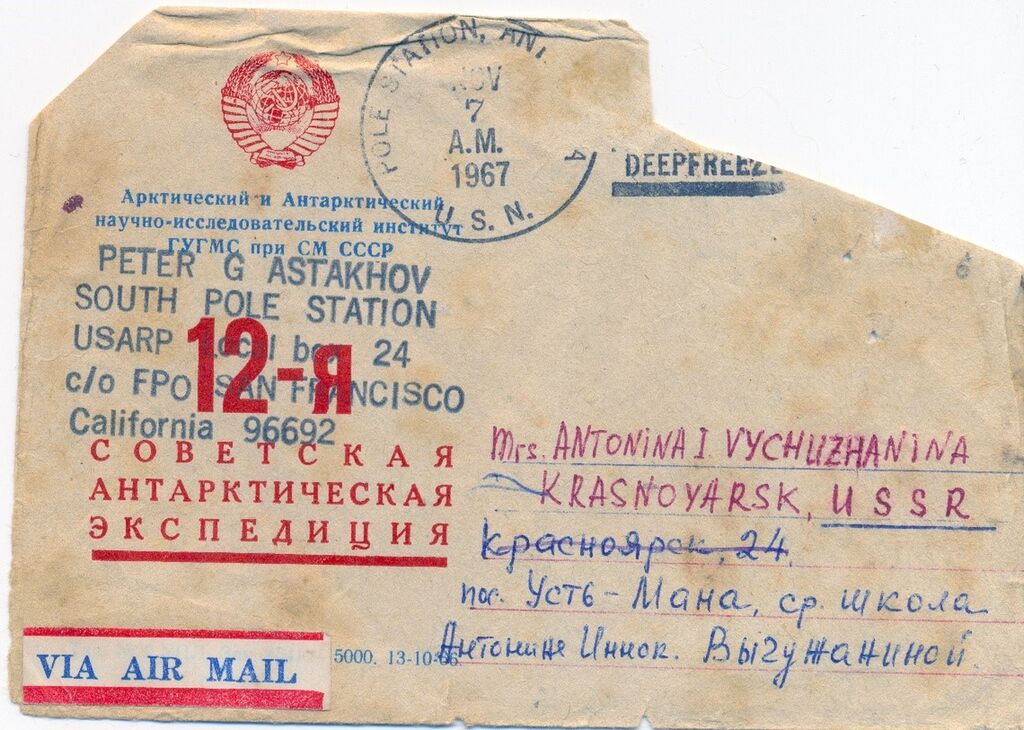 POLE STATION, ANT.
NOV
7
A.M.
1967
U.S.N.
4
DEEPFREEZE
Арктический и Антарктический
научно-исследовательский институт
ГУГМС при СМ СССР
PETER G ASTAKHOV
SOUTH POLE STATION
USARP Local box 24
c/o FPO SAN FRANCISCO
California 96692
12-я
СОВЕТСКАЯ
АНТАРКТИЧЕСКАЯ
ЭКСПЕДИЦИЯ
Mrs. ANTONINA I VYCHUZHANINA
KRASNOYARSK, USSR
Красноярск, 24
пос. Усть-Мана, ср. школа
Антонине Иннок. Вычужаниной.
VIA AIR MAIL
5000. 13-10-66